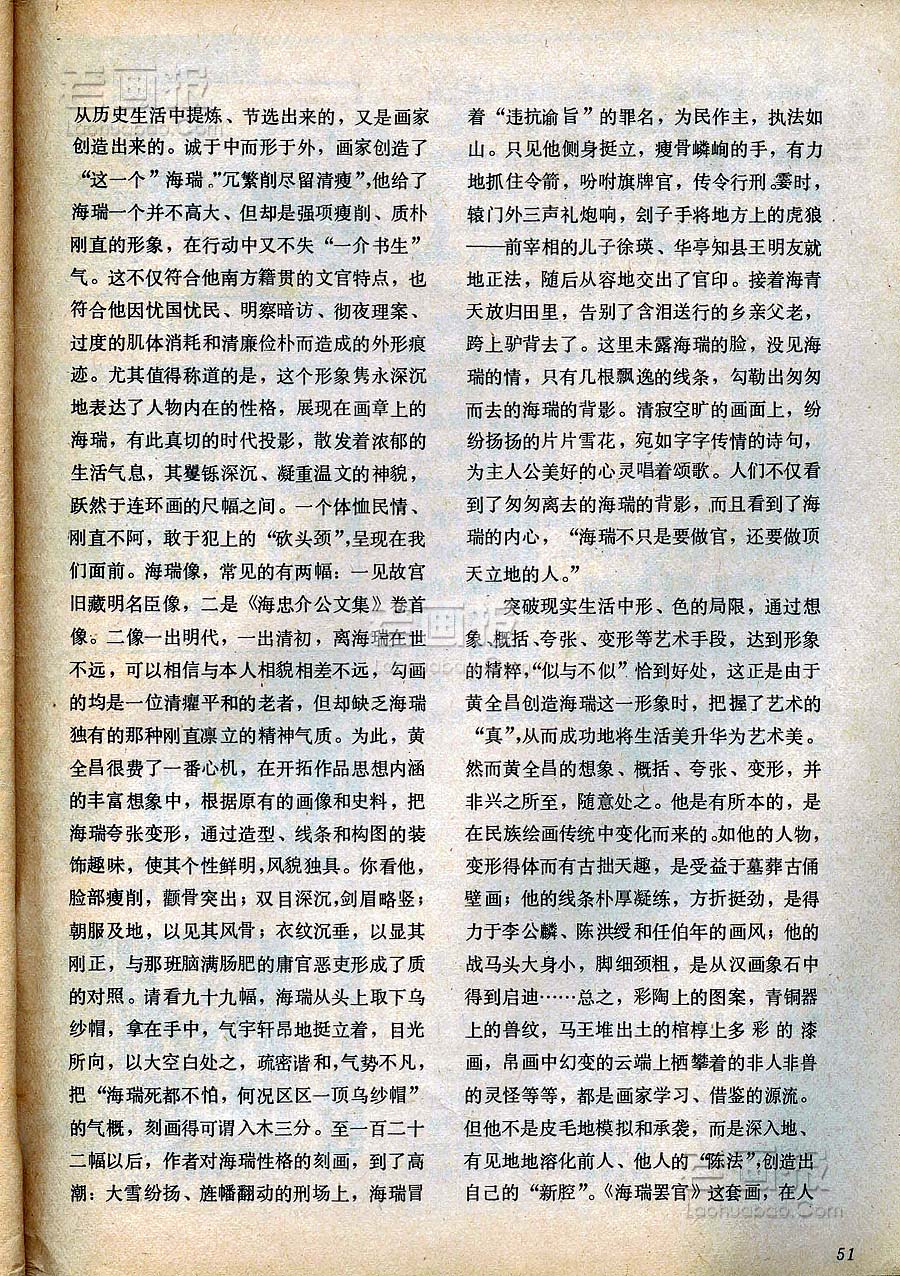 老画报
laohuabao.com
从历史生活中提炼、节选出来的，又是画家
创造出来的。诚于中而形于外，画家创造了
“这一个”海瑞。”冗繁削尽留清瘦”，他给了
海瑞一个并不高大、但却是强项瘦削、质朴
刚直的形象，在行动中又不失“一介书生”
气。这不仅符合他南方籍贯的文官特点，也
符合他因忧国忧民、明察暗访、彻夜理案、
过度的肌体消耗和清廉俭朴而造成的外形痕
迹。尤其值得称道的是，这个形象隽永深沉
地表达了人物内在的性格，展现在画章上的
海瑞，有此真切的时代投影，散发着浓郁的
生活气息，其矍铄深沉、凝重温文的神貌，
跃然于连环画的尺幅之间。一个体恤民情、
刚直不阿，敢于犯上的“砍头颈”，呈现在我
们面前。海瑞像，常见的有两幅：一见故宫
旧藏明名臣像，二是《海忠介公文集》卷首
像。二像一出明代，一出清初，离海瑞在世
不远，可以相信与本人相貌相差不远，勾画
的均是一位清癯平和的老者，但却缺乏海瑞
独有的那种刚直凛立的精神气质。为此，黄
全昌很费了一番心机，在开拓作品思想内涵
的丰富想象中，根据原有的画像和史料，把
海瑞夸张变形，通过造型、线条和构图的装
饰趣味，使其个性鲜明，风貌独具。你看他，
脸部瘦削，颧骨突出；双目深沉，剑眉略竖；
朝服及地，以见其风骨；衣纹沉垂，以显其
刚正，与那班脑满肠肥的庸官恶吏形成了质
的对照。请看九十九幅，海瑞从头上取下乌
纱帽，拿在手中，气宇轩昂地挺立着，目光
所向，以大空白处之，疏密谐和，气势不凡，
把“海瑞死都不怕，何况区区一顶乌纱帽”
的气概，刻画得可谓入木三分。至一百二十
二幅以后，作者对海瑞性格的刻画，到了高
潮：大雪纷扬、旌幡翻动的刑场上，海瑞冒
着“违抗谕旨”的罪名，为民作主，执法如
山。只见他侧身挺立，瘦骨嶙峋的手，有力
地抓住令箭，吩咐旗牌官，传令行刑。霎时，
辕门外三声礼炮响，刽子手将地方上的虎狼
——前宰相的儿子徐瑛、华亭知县王明友就
地正法，随后从容地交出了官印。接着海青
天放归田里，告别了含泪送行的乡亲父老，
跨上驴背去了。这里未露海瑞的脸，没见海
瑞的情，只有几根飘逸的线条，勾勒出匆匆
而去的海瑞的背影。清寂空旷的画面上，纷
纷扬扬的片片雪花，宛如字字传情的诗句，
为主人公美好的心灵唱着颂歌。人们不仅看
到了匆匆离去的海瑞的背影，而且看到了海
瑞的内心，“海瑞不只是要做官，还要做顶
天立地的人。”
突破现实生活中形、色的局限，通过想
象、概括、夸张、变形等艺术手段，达到形象
的精粹，“似与不似”恰到好处，这正是由于
黄全昌创造海瑞这一形象时，把握了艺术的
“真”，从而成功地将生活美升华为艺术美。
然而黄全昌的想象、概括、夸张、变形，并
非兴之所至，随意处之。他是有所本的，是
在民族绘画传统中变化而来的。如他的人物，
变形得体而有古拙天趣，是受益于墓葬古俑
壁画；他的线条朴厚凝练，方折挺劲，是得
力于李公麟、陈洪绶和任伯年的画风；他的
战马头大身小，脚细颈粗，是从汉画象石中
得到启迪……总之，彩陶上的图案，青铜器
上的兽纹，马王堆出土的棺椁上多彩的漆
画，帛画中幻变的云端上栖攀着的非人非兽
的灵怪等等，都是画家学习、借鉴的源流。
但他不是皮毛地模拟和承袭，而是深入地、
有见地地溶化前人、他人的“陈法”，创造出
自己的“新腔”。《海瑞罢官》这套画，在人
老画报
laohuabao.com
老画报
laohuabao.com
51